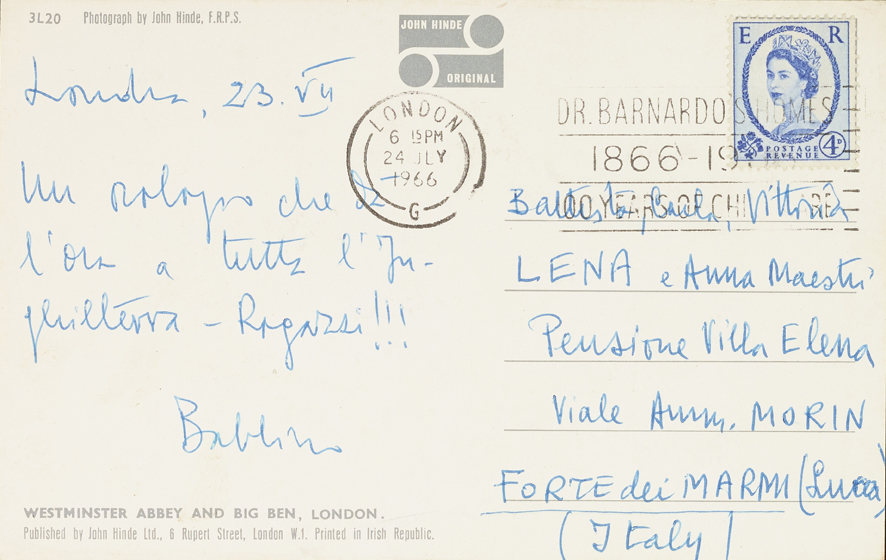 3L20 Photograph by John Hinde, F.R.P.S.
JOHN HINDE
ORIGINAL
E R
POSTAGE
REVENUE
4D
LONDON
6 15PM
24 JLY
1966
G
DR. BARNARDO'S HOMES
1866-19
100 YEARS OF CHILD CARE
Londra, 23. VII
Un orologio che dà
l'ora a tutta l'In-
ghilterra - Ragazzi!!!
Babbino
Battista, Paola, Vittoria
LENA e Anna Maestri
Pensione Villa Elena
Viale Amm. MORIN
FORTE dei MARMI (Lucca)
(Italy)
WESTMINSTER ABBEY AND BIG BEN, LONDON.
Published by John Hinde Ltd., 6 Rupert Street, London W.1. Printed in Irish Republic.